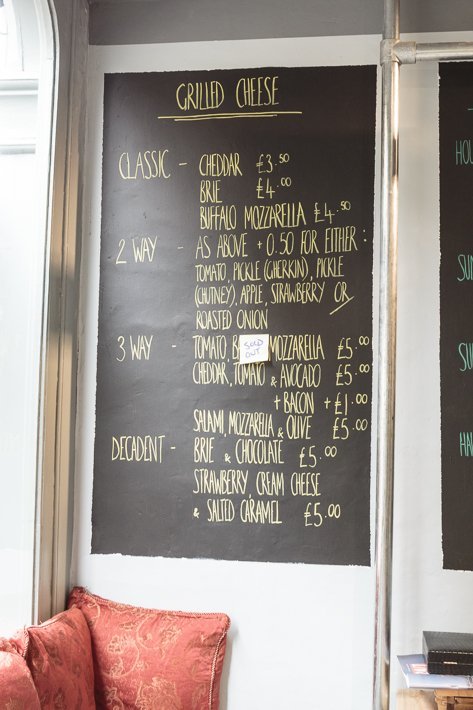 GRILLED CHEESE
CLASSIC - CHEDDAR £3.50
BRIE £4.00
BUFFALO MOZZARELLA £4.50
2 WAY - AS ABOVE + 0.50 FOR EITHER :
TOMATO, PICKLE (GHERKIN), PICKLE
(CHUTNEY), APPLE, STRAWBERRY OR
ROASTED ONION
3 WAY - TOMATO, MOZZARELLA £5.00
SOLD
OUT
CHEDDAR, TOMATO & AVOCADO £5.00
+ BACON + £1.00
SALAMI, MOZZARELLA & OLIVE £5.00
DECADENT - BRIE & CHOCOLATE £5.00
STRAWBERRY, CREAM CHEESE
& SALTED CARAMEL £5.00